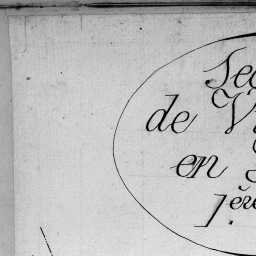 Sec
de V
en
1.ère